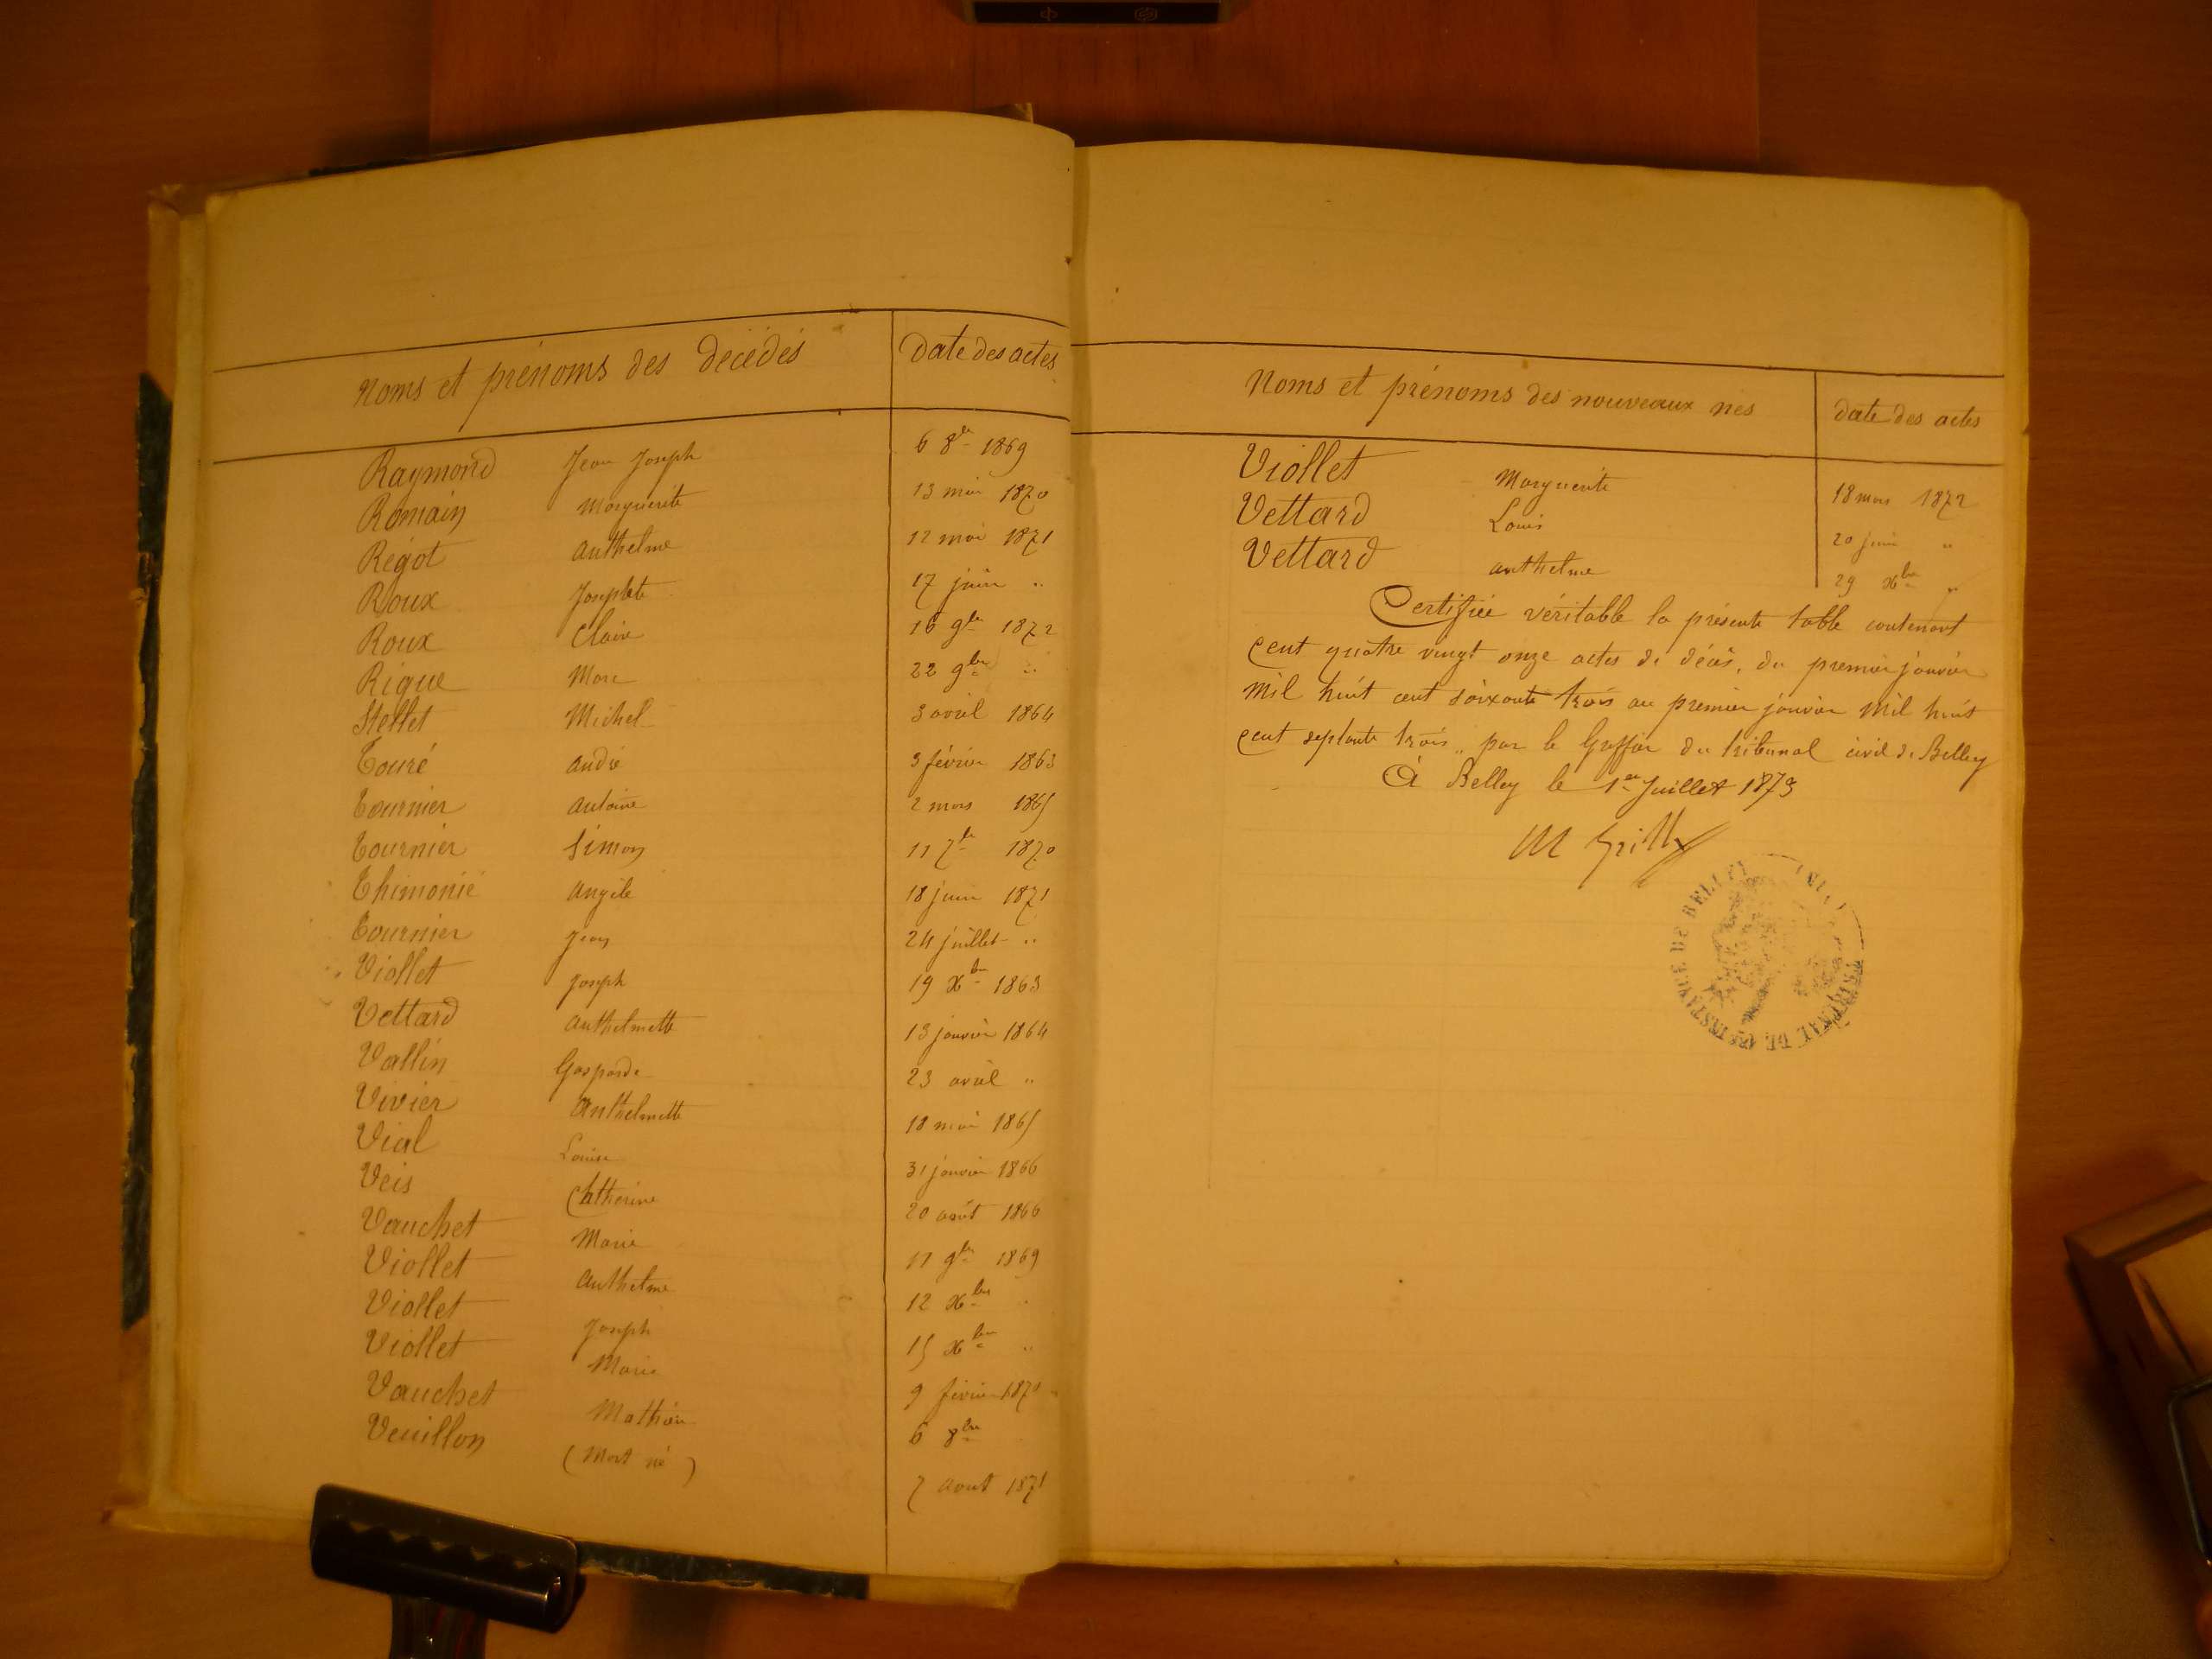 Noms et prénoms des décédés Date des actes
Raymond Jean Joseph 6 8bre 1869
Romain Marguerite 13 mai 1870
Régot Anthelme 12 mai 1871
Roux Josephte 17 juin "
Roux Claire 16 9bre 1872
Rique Marc 22 9bre "
Stellet Michel 3 avril 1864
Touré André 3 février 1863
Tournier Antoine 2 mars 1865
Tournier Simon 11 7bre 1870
Thimonié Angèle 18 juin 1871
Tournier Jean 24 juillet "
Viollet Joseph 19 Xbre 1863
Vettard Anthelmette 13 janvier 1864
Vallin Gasparde 23 avril "
Vivier Anthelmette 18 mai 1865
Vial Louise 31 janvier 1866
Veis Catherine 20 août 1866
Vauchet Marie 11 9bre 1869
Viollet Anthelme 12 Xbre "
Viollet Joseph 15 Xbre "
Viollet Marie 9 février 1870
Vauchet Mathieu 6 8bre
Veuillon (Mort né) 7 aout 1871
Noms et prénoms des nouveaux nés date des actes
Viollet Marguerite 18 mars 1872
Vettard Louis 20 juin "
Vettard anthelme 29 Xbre "
Certifiée véritable la présente table contenant
cent quatre vingt onze actes de décès, du premier janvier
mil huit cent soixante trois au premier janvier mil huit
cent septante trois, par le Greffier du tribunal civil de Belley
À Belley le 1er Juillet 1873
TRIBUNAL DE 1RE INSTANCE DE BELLEY